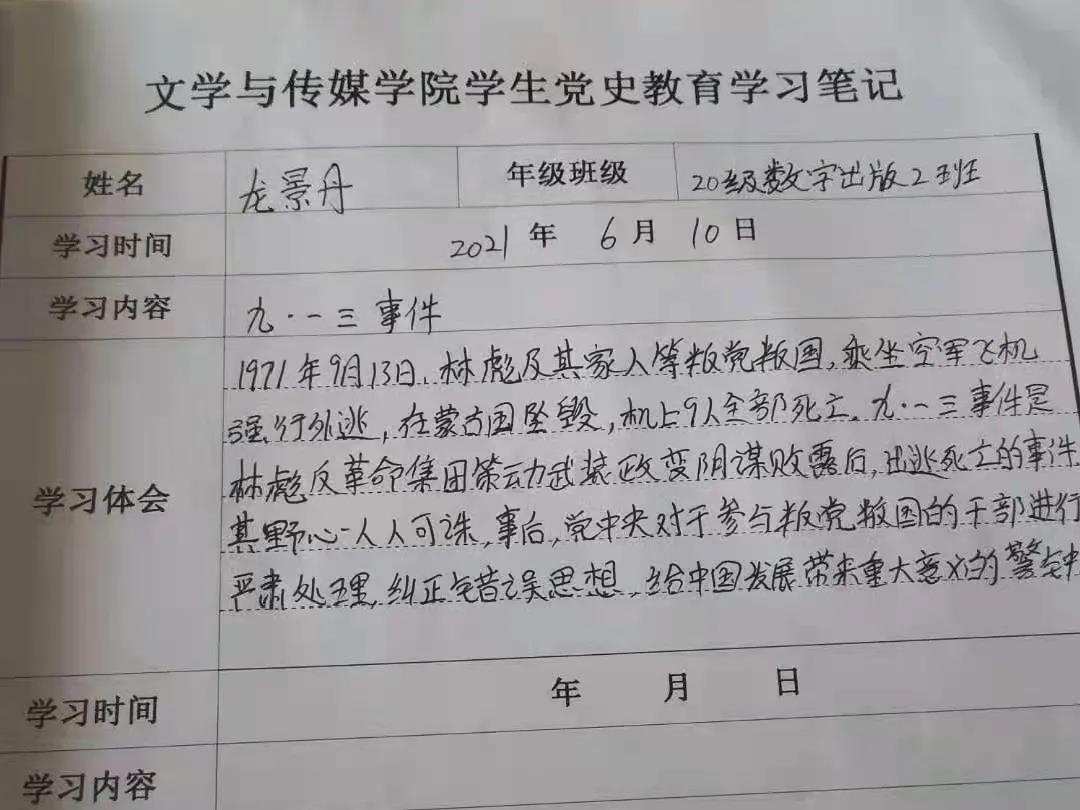 文学与传媒学院学生党史教育学习笔记
姓名 龙景丹 年级班级 20级数字出版2班
学习时间 2021年 6月 10日
学习内容 九·一三事件
学习体会
1971年9月13日,林彪及其家人等叛党叛国,乘坐空军飞机
强行外逃,在蒙古国坠毁,机上9人全部死亡。九·一三事件是
林彪反革命集团策动武装政变阴谋败露后,出逃死亡的事件
其野心人人可诛,事后,党中央对于参与叛党叛国的干部进行
严肃处理,纠正错误思想,给中国发展带来重大意义的警钟
学习时间 年 月 日
学习内容